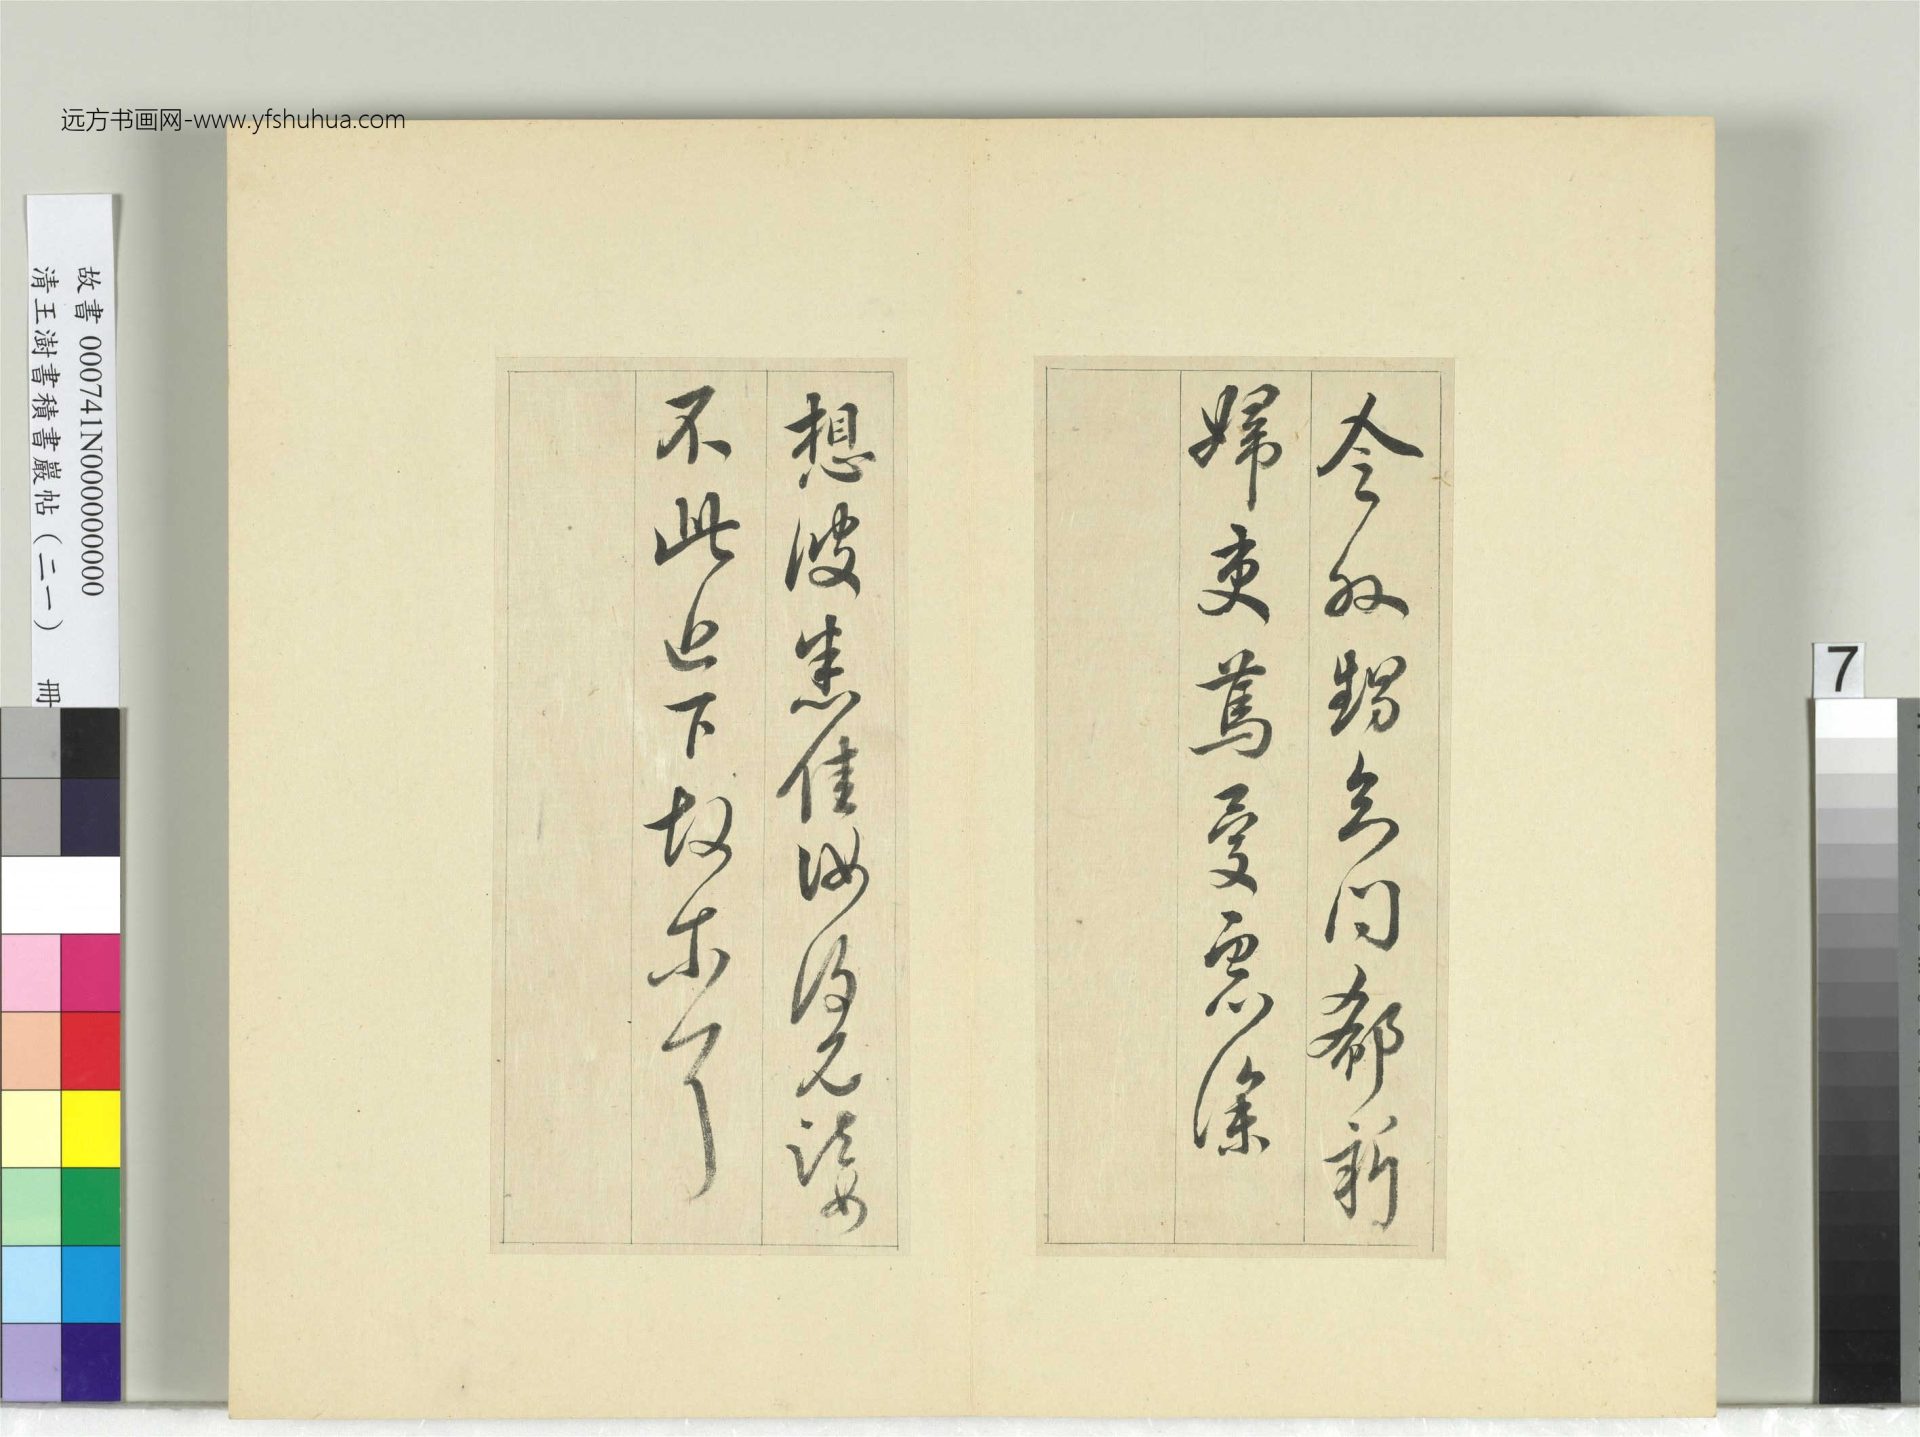 远方书画网-www.yfshuhua.com
故書 000741N000000000
清王澍書積書巖帖（二一）　冊
7
令外甥知問郗新
婦更篤憂慮深
想彼悉佳汝得見諸女
不此上下故未了